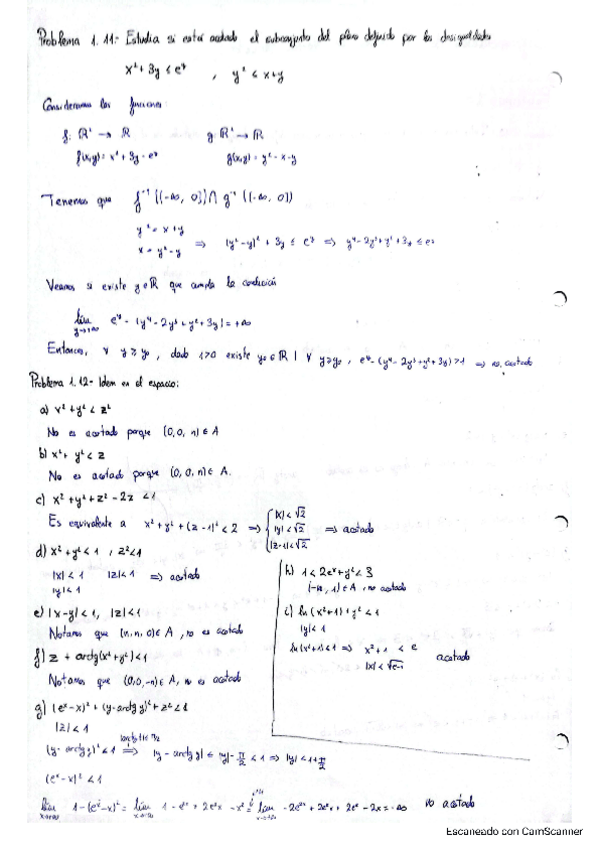 Problema 1.11.- Estudia si está acotado el subconjunto del plano definido por las desigualdades
x² + 3y ≤ e^y , y² ≤ x+y
Consideramos las funciones:
f: ℝ² → ℝ g: ℝ² → ℝ
f(x,y) = x² + 3y - e^y g(x,y) = y² - x - y
Tenemos que f⁻¹((-∞, 0]) ∩ g⁻¹((-∞, 0])
y² = x + y
x = y² - y ⇒ (y² - y)² + 3y ≤ e^y ⇒ y⁴ - 2y³ + y² + 3y ≤ e^y
Veamos si existe y∈ℝ que cumpla la condición
lim y→+∞ e^y - (y⁴ - 2y³ + y² + 3y) = +∞
Entonces, ∀ y ≥ y₀, dado 1>0 existe y₀∈ℝ | ∀ y≥y₀, e^y - (y⁴ - 2y³ + y² + 3y) > 1 ⇒ no acotado
Problema 1.12- Idem en el espacio:
a) x² + y² < z²
No es acotado porque (0, 0, n) ∈ A
b) x² + y² < z
No es acotado porque (0, 0, n) ∈ A.
c) x² + y² + z² - 2z < 1
Es equivalente a x² + y² + (z-1)² < 2 ⇒ { |x| < √2
|y| < √2 ⇒ acotado
|z-1| < √2
d) x² + y² < 1 , z² < 1
|x| < 1 |z| < 1 ⇒ acotado
|y| < 1
e) |x-y| < 1, |z| < 1
Notamos que (n, n, 0) ∈ A, no es acotado
f) z + arctg(x² + y²) < 1
Notamos que (0,0,-n) ∈ A, no es acotado
g) (e^x - x)² + (y - arctg y)² + z² < 1
|z| < 1
|arctg t| ≤ π/2
(y - arctg y)² < 1 ⇒ |y - arctg y| ≤ |y| - π/2 < 1 ⇒ |y| < 1 + π/2
(e^x - x)² < 1
lim x→+∞ 1 - (e^x - x)² = lim x→+∞ 1 - e^2x + 2e^x x - x² = lim x→+∞ - 2e^2x + 2e^x x + 2e^x - 2x = -∞ no acotado
h) 1 < 2e^x + y² < 3
(-n, 1) ∈ A, no acotado
i) ln(x²+1) + y² < 1
|y| < 1
ln(x²+1) < 1 ⇒ x² + 1 < e
|x| < √e-1 acotado
Escaneado con CamScanner